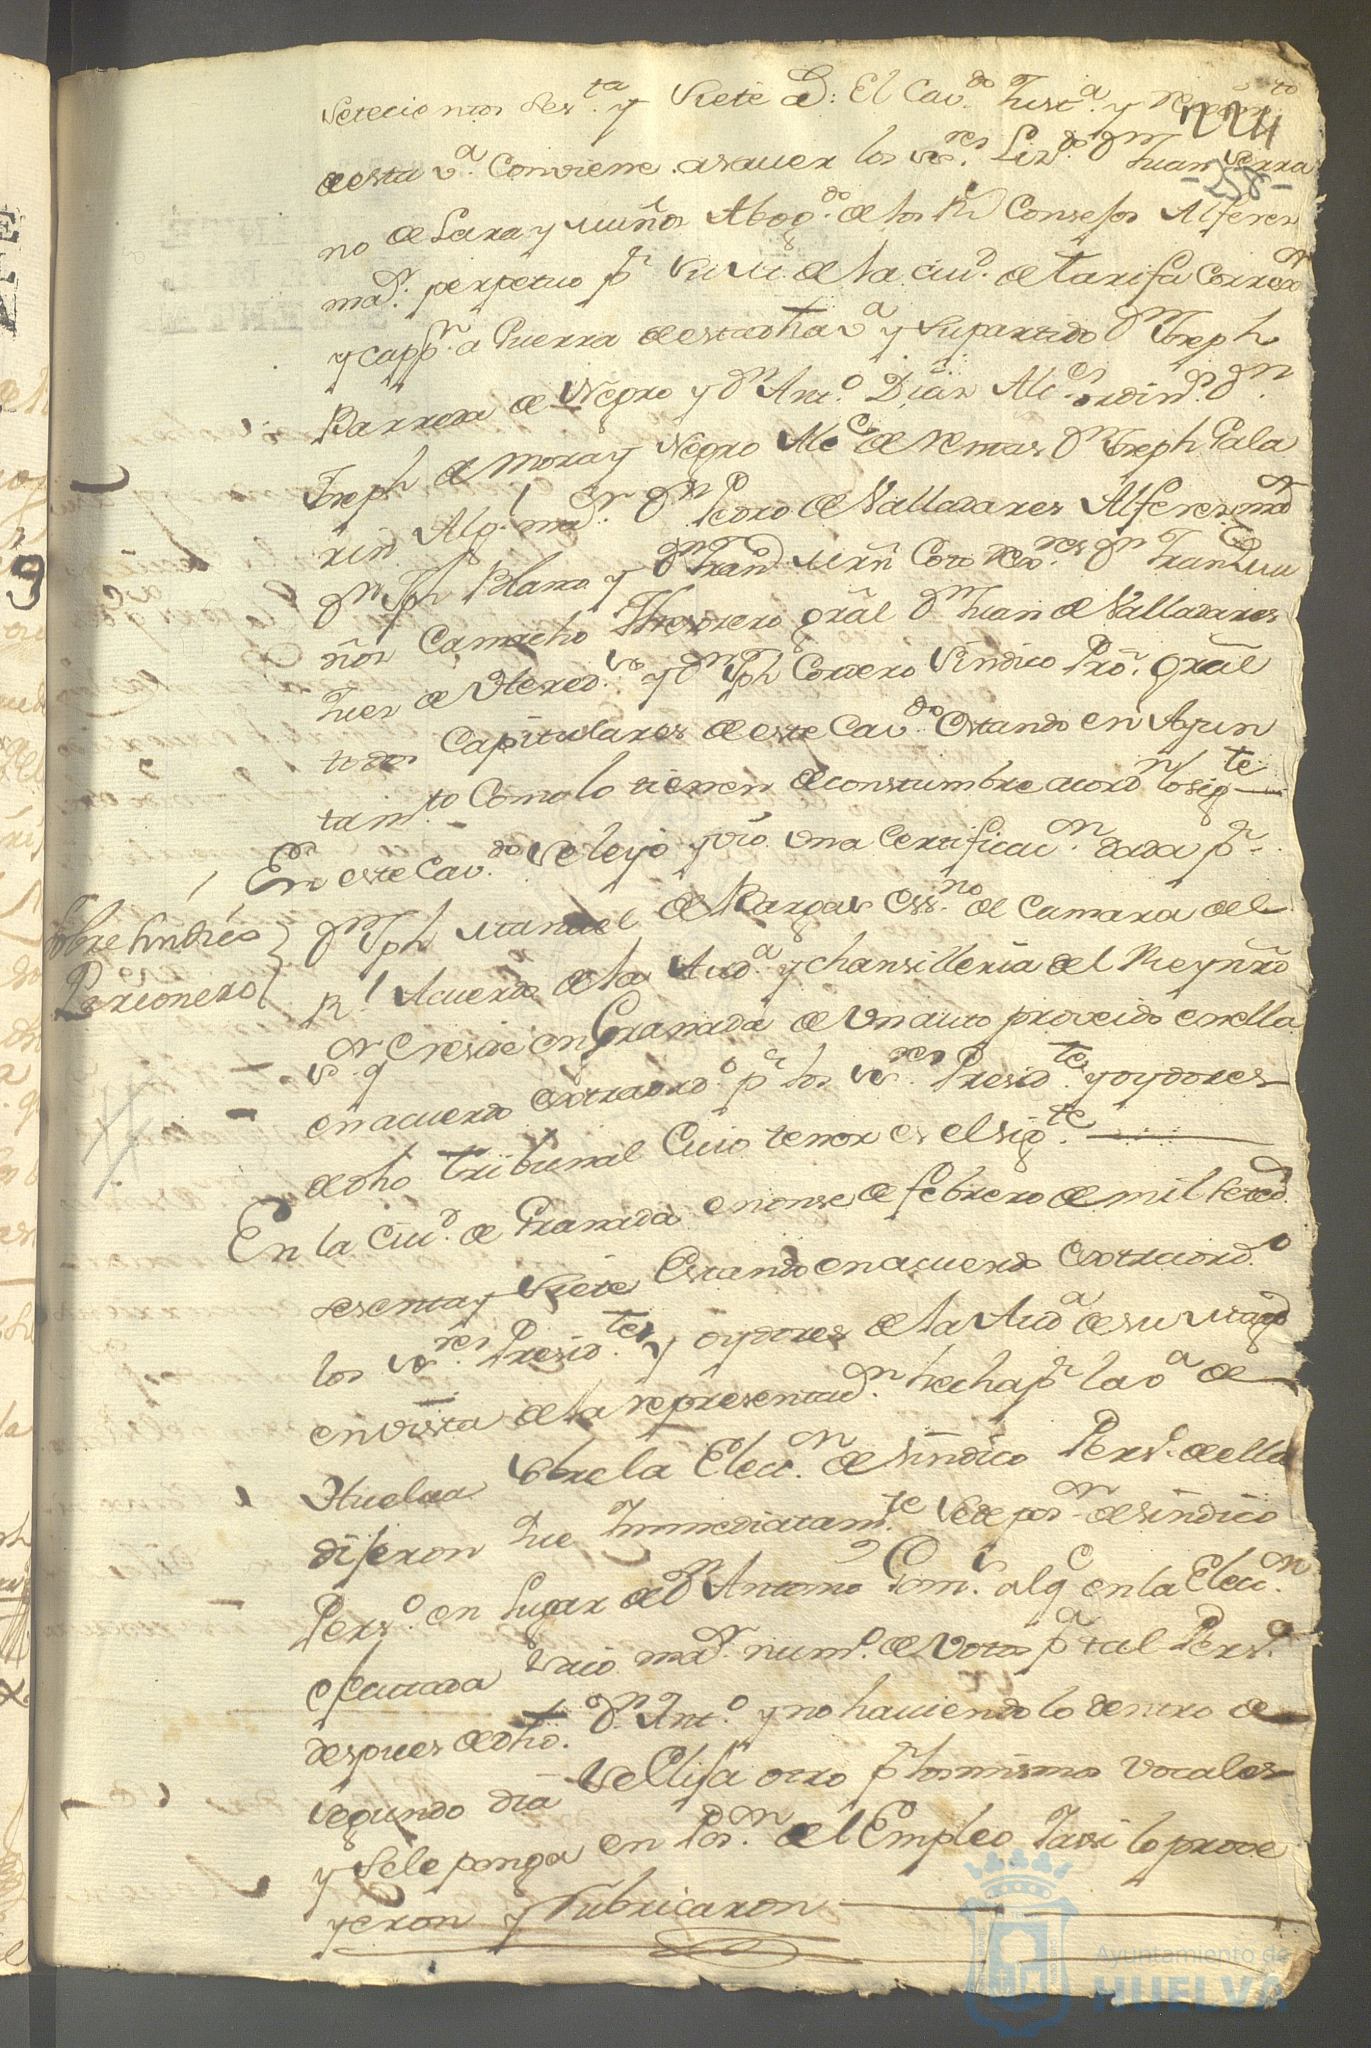 setecientos ses.ta y siete a.s: El Cav.do Just.a y Regim.to
224
de esta v.a Conviene asaver los ss.res Liz.do D.n Juan Serra
-258-
no de Lara y Muños Abog.do de los R.s Consejos Alferes
ma.r perpetuo p.r su M. de la ciu.d de Tarifa Correx.or
y cap.n a Guerra de esta dha v.a y su partido D.n Joseph
Barrera de Negro y D.n Ant.o Dias Alc.es ordin.s D.n
Joseph de Mora y Negro Alc.e de Rentas D.n Joseph Gala
rin Alg.l ma.r D.n Pedro de Valladares Alferes ma.r
D.n Jph Blanco y D.n Fran.co Mrn Coto Rex.res D.n Fran.co Mu
ños Camacho Thesorero gral D.n Juan de Valladares
Jues de Hered.s y D.n Jph Cordero Sindico Pro.r gral
todos Capitulares de este Cav.do Estando en Ayun
tam.to Como lo tienen de constumbre acord.n lo sig.te
En este Cav.do se leyo y vio una Certificaz.n dada p.r
Sobre Sindico
Personero
D.n Jph Manuel de Bargas Ess.no de Camara del
R.l Acuerdo de la Aud.a y chansilleria del Rey nro
s.or q reside en Granada de un auto proveido en ella
en acuerdo extraord.o p.r los ss.res Presid.te y oydores
de dho tribunal Cuio tenor es el sig.te
En la Ciu.d de Granada en onse de febrero de mil setec.s
sesenta y siete Estando en acuerdo Extraord.o
los ss.res Presid.te y oydores de la Aud.a de su Magd
en vista de la representaz.n hecha p.r la v.a de
Huelva sobre la Elecc.n de sindico Pers.o de ella
dijeron Que Immediatam.te se de pos.n de sindico
Pers.o en Lugar de D.n Antonio Gom.s al q en la Elecc.n
efectuada saco ma.r num.o de votos p.a tal Pers.o
despues de dho D.n Ant.o y no haviendolo dentro de
segundo dia se Elija otro p.r los mismos vocales
y se le ponga en Pos.n del Empleo Y asi lo prove
yeron y Rubricaron
Ayuntamiento de
HUELVA